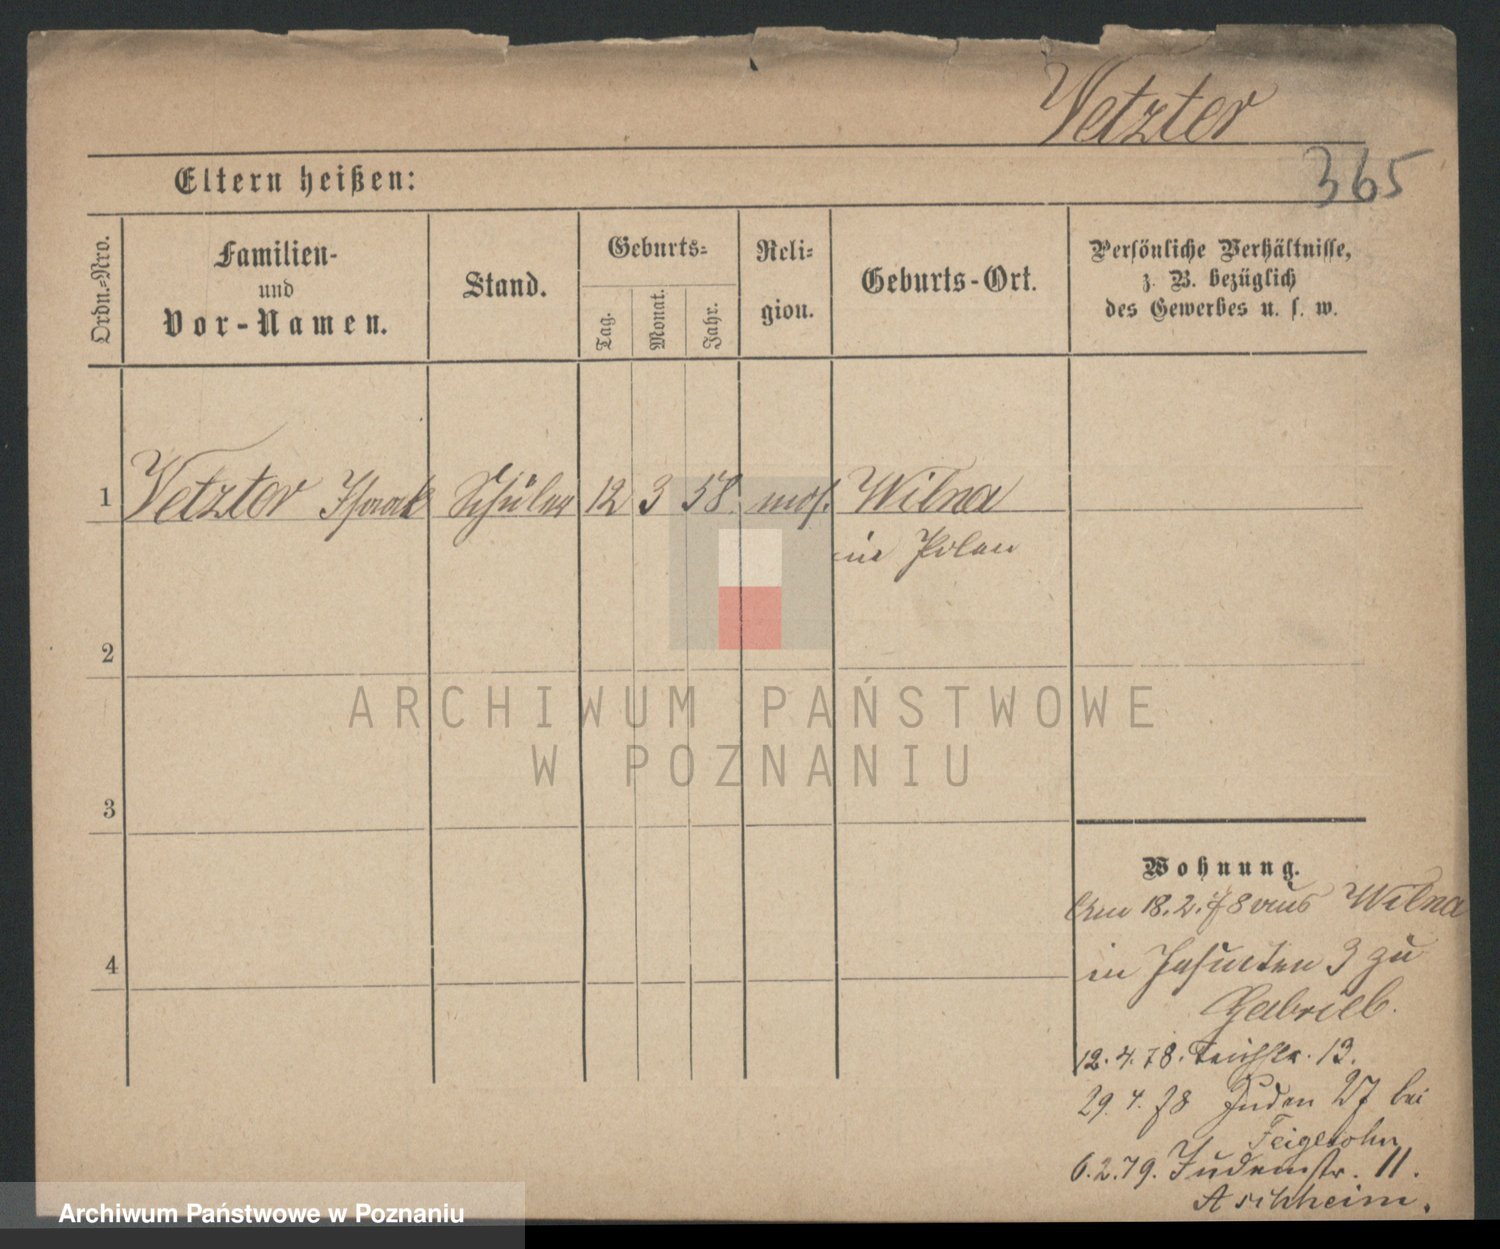 Vetzter
365
Eltern heißen:
Ordn.-Nro.
Familien-
und
Vor-Namen.
Stand.
Geburts-
Tag.
Monat.
Jahr.
Reli-
gion.
Geburts-Ort.
Persönliche Verhältnisse,
z. B. bezüglich
des Gewerbes u. s. w.
1 Vetzter Isaak Schüler 12 3 58. mos. Wilna
in Polen
2
3
4
Wohnung.
Am 18.2.78 aus Wilna
in Jesuiten 3 zu
Gabriel.
12.4.78. Teichstr. 13.
29.4.78 Juden 27 bei
Feigesohn
6.2.79. Judenstr. 11.
Aschheim.
ARCHIWUM PAŃSTWOWE
W POZNANIU
Archiwum Państwowe w Poznaniu